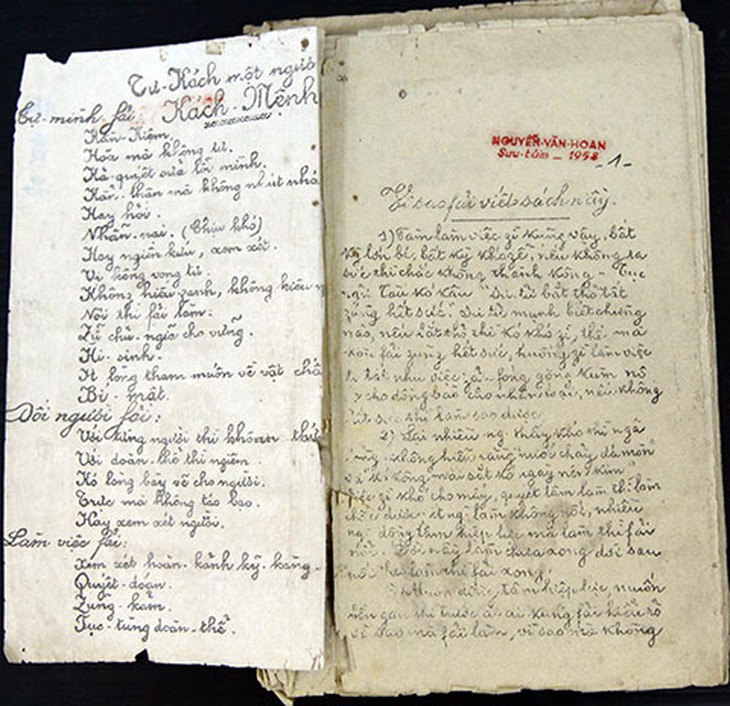 Tư-Kách một người
Kách-Mệnh
Tự mình fải
Kần-Kiệm.
Hòa mà không tư.
Kả quyết sửa lỗi mình.
Kẩn-thận mà không nhút nhá
Hay hỏi.
Nhẫn-nại. (Chịu khó)
Hay ngiên-kứu, xem xét.
Vị kông vong tư.
Không hiếu zanh, không kiêu n
Nói thì fải làm.
Zữ chủ-ngĩa cho vững.
Hi-sinh.
Ít lòng tham muốn về vật chấ
Bí-mật.
Đối người fải:
Với từng người thì khoan thứ
Với đoàn-thể thì ngiêm.
Kó lòng bày vẽ cho người.
Trực mà không táo bạo.
Hay xem xét người.
Làm việc fải:
Xem xét hoàn-kảnh kỹ-kàng.
Quyết-đoán.
Zũng-kảm.
Fục-tùng đoàn-thể.
NGUYỄN-VĂN-HOAN
Sưu-tầm _ 1958
-1-
Vì sao fải viết sách này.
1) Fàm làm việc gì kũng vậy, bất
kỳ lớn bé, bất kỳ khó zễ, nếu không ra
sức thì chắc không thành kông - Tục
ngữ Tàu kó kâu "Sư tử bắt thỏ tất
zùng hết sức". Sư tử mạnh biết chừng
nào, nếu bắt thỏ thì kó khó gì, thế mà
kòn fải zùng hết sức, huống gì làm việc
to tát như việc: ải-fóng gông kùm nô
cho đồng bào cho nhân-loại, nếu không
hết sức thì làm sao được.
2) Lại nhiều ng. thấy khó thì ngã
lòng, không hiểu rằng "nước chảy đá mòn"
và "kó kông mài sắt kó ngày nên kim"
việc gì khó cho mấy, quyết tâm làm thì làm
chắc được, ít ng. làm không nổi, nhiều
ng. đồng tâm hiệp lực mà làm thì fải
nổi. Đời này làm chưa xong đời sau
nối theo làm thì fải xong.
3) Muốn được, tâm hiệp lực, muốn
bền gan thì trước ai ai kũng fải hiểu rõ
vì sao mà fải làm, vì sao mà không